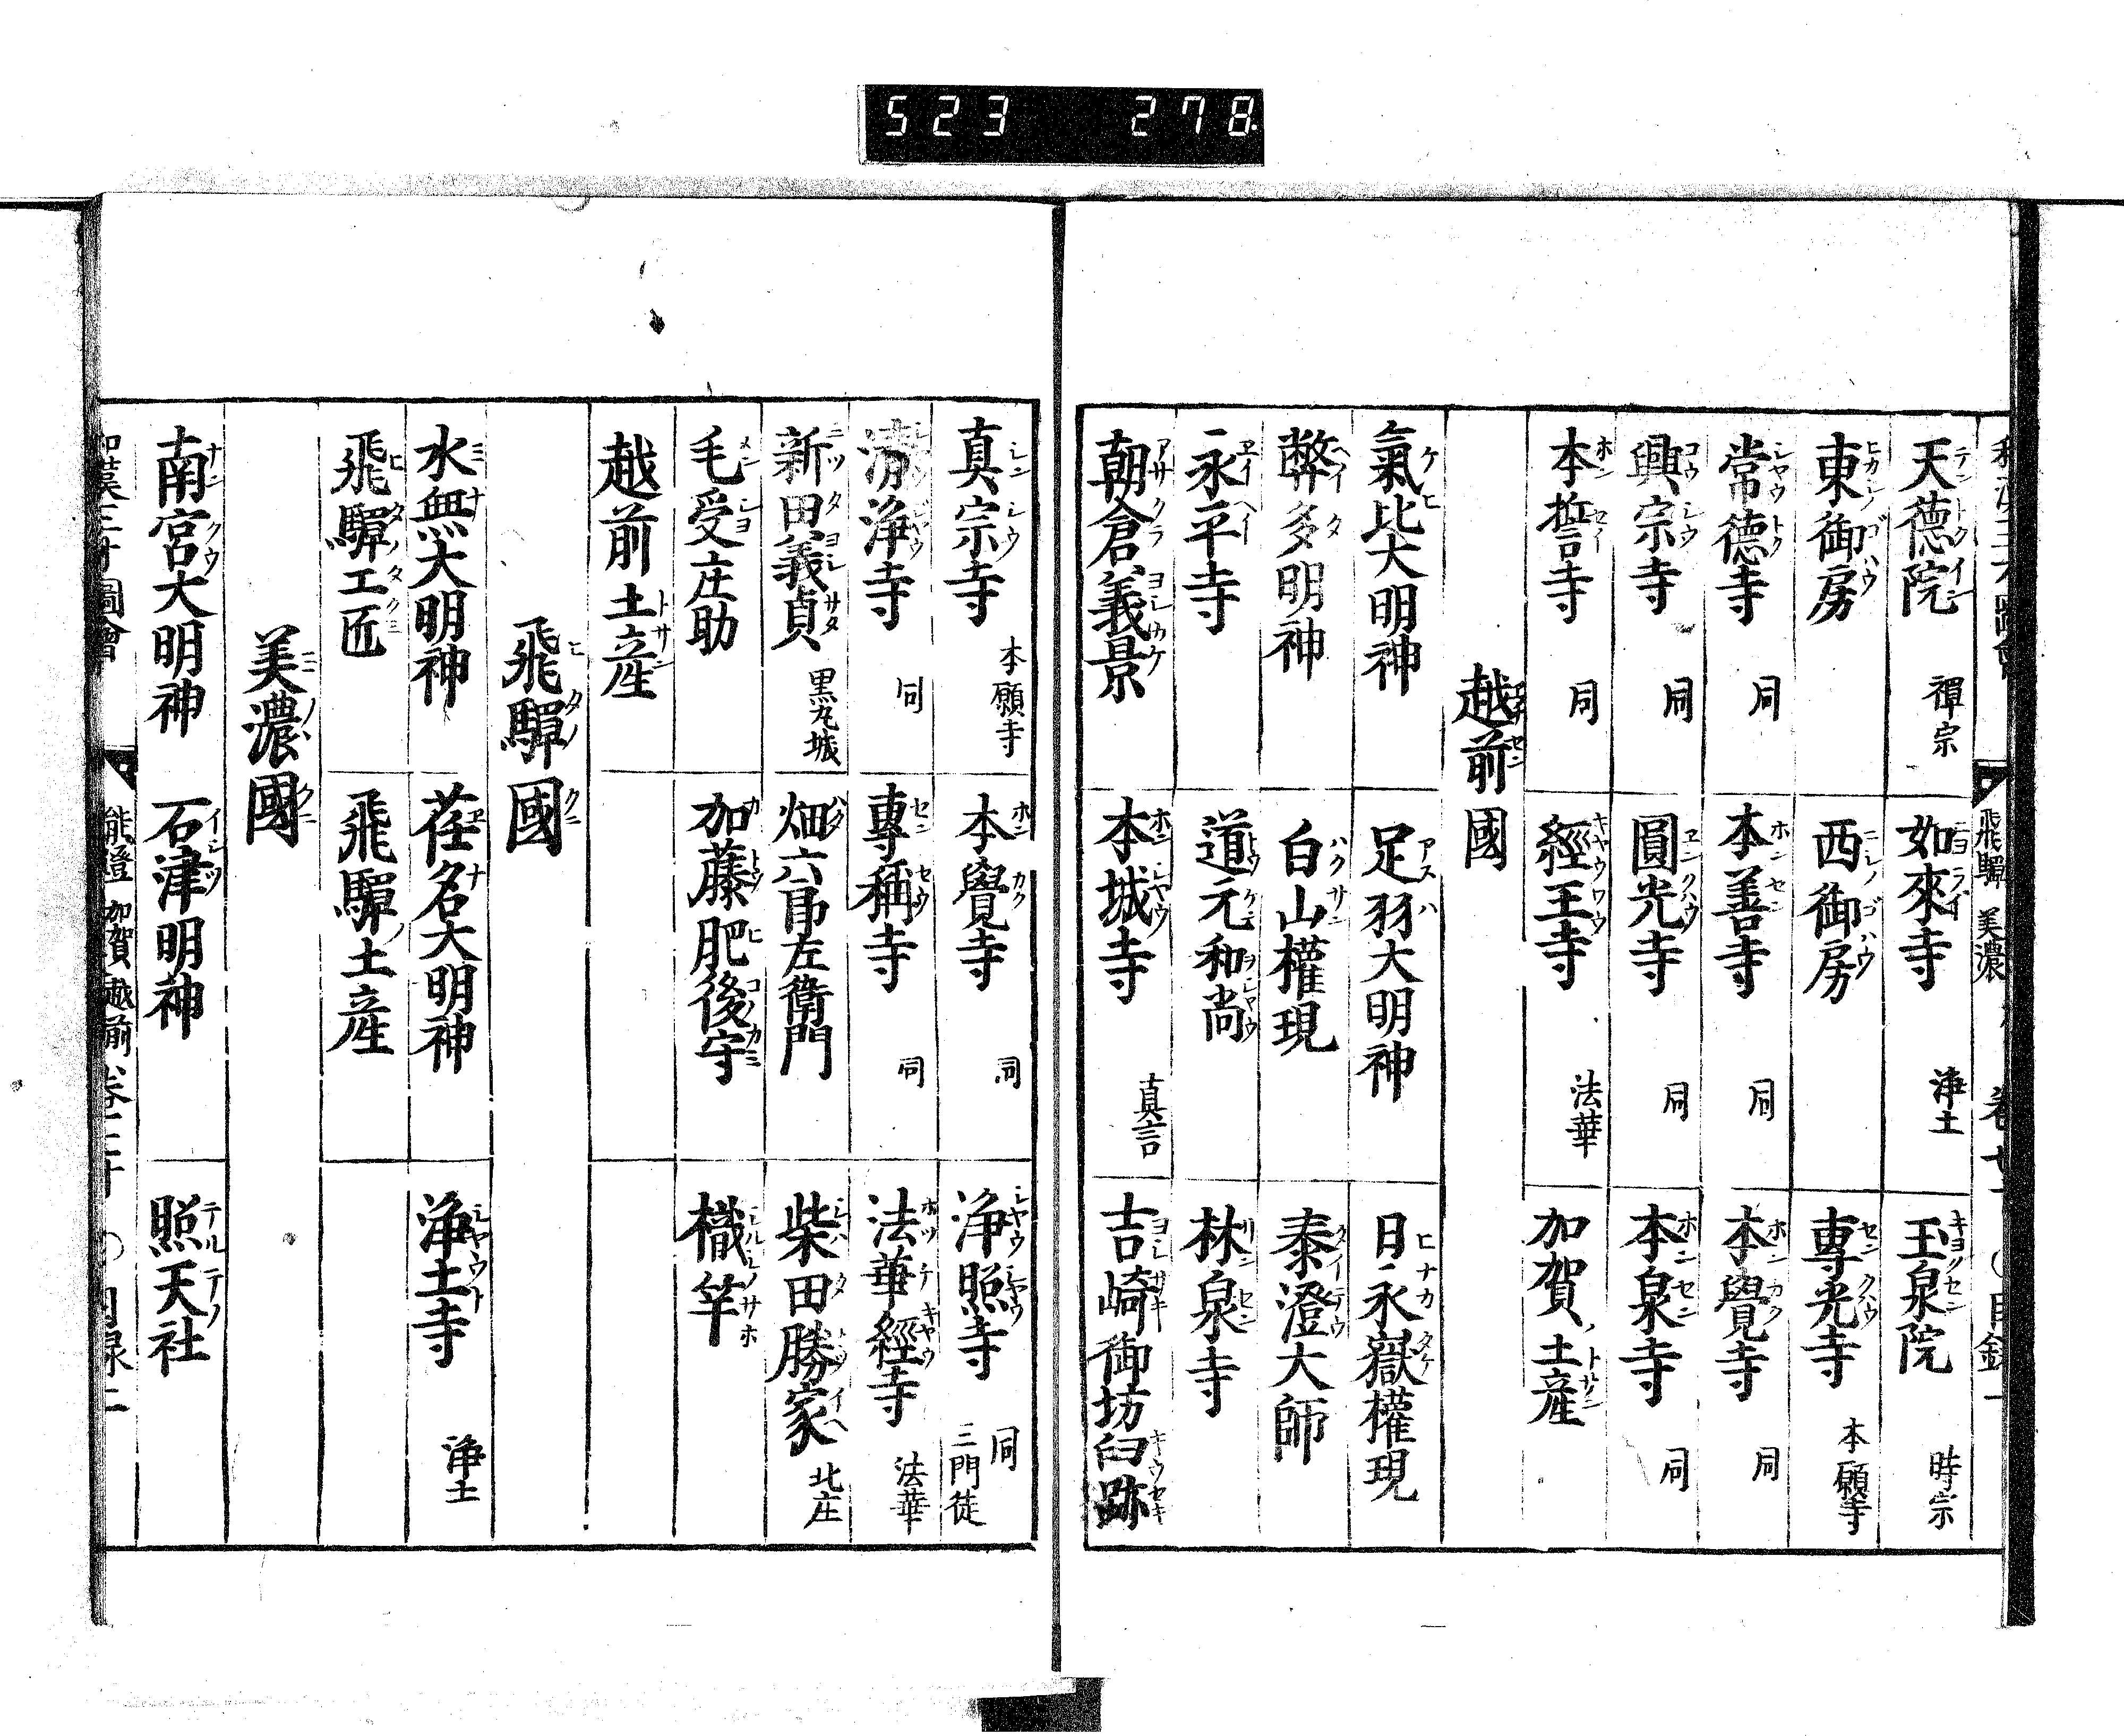 523 278
飛驒 美濃
天德院 禪宗 如來寺 淨土 玉泉院 時宗
東御房 西御房 專光寺 本願寺
常德寺 同 本善寺 同 本覺寺 同
興宗寺 同 圓光寺 同 本泉寺 同
本誓寺 同 經王寺 法華 加賀ノ土產
越前國
氣比大明神 足羽大明神 日永嶽權現
弊多明神 白山權現 泰澄大師
永平寺 道元和尚 林泉寺
朝倉義景 本城寺 真言 吉崎御坊臼跡
真宗寺 本願寺 本覺寺 同 淨照寺 同 三門徒
清淨寺 同 專稱寺 同 法華經寺 法華
新田義貞 黒丸城 畑六郎左衛門 柴田勝家 北庄
毛受庄助 加藤肥後守 樴竿
越前土產
飛驒國
水無大明神 荏名大明神 淨土寺 淨土
飛驒工匠 飛驒ノ土產
美濃國
南宮大明神 石津明神 照天社
能登 加賀 越前 目録二